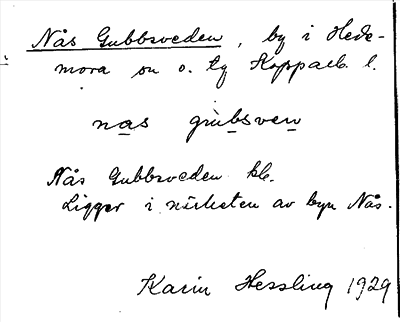 Nås Gubbsveden, by i Hede-
mora sn o. tg Kopparb. l.
nas grubsven
Nås Gubbsveden kbr.
Ligger i närheten av byn Nås.
Karin Hessling 1929